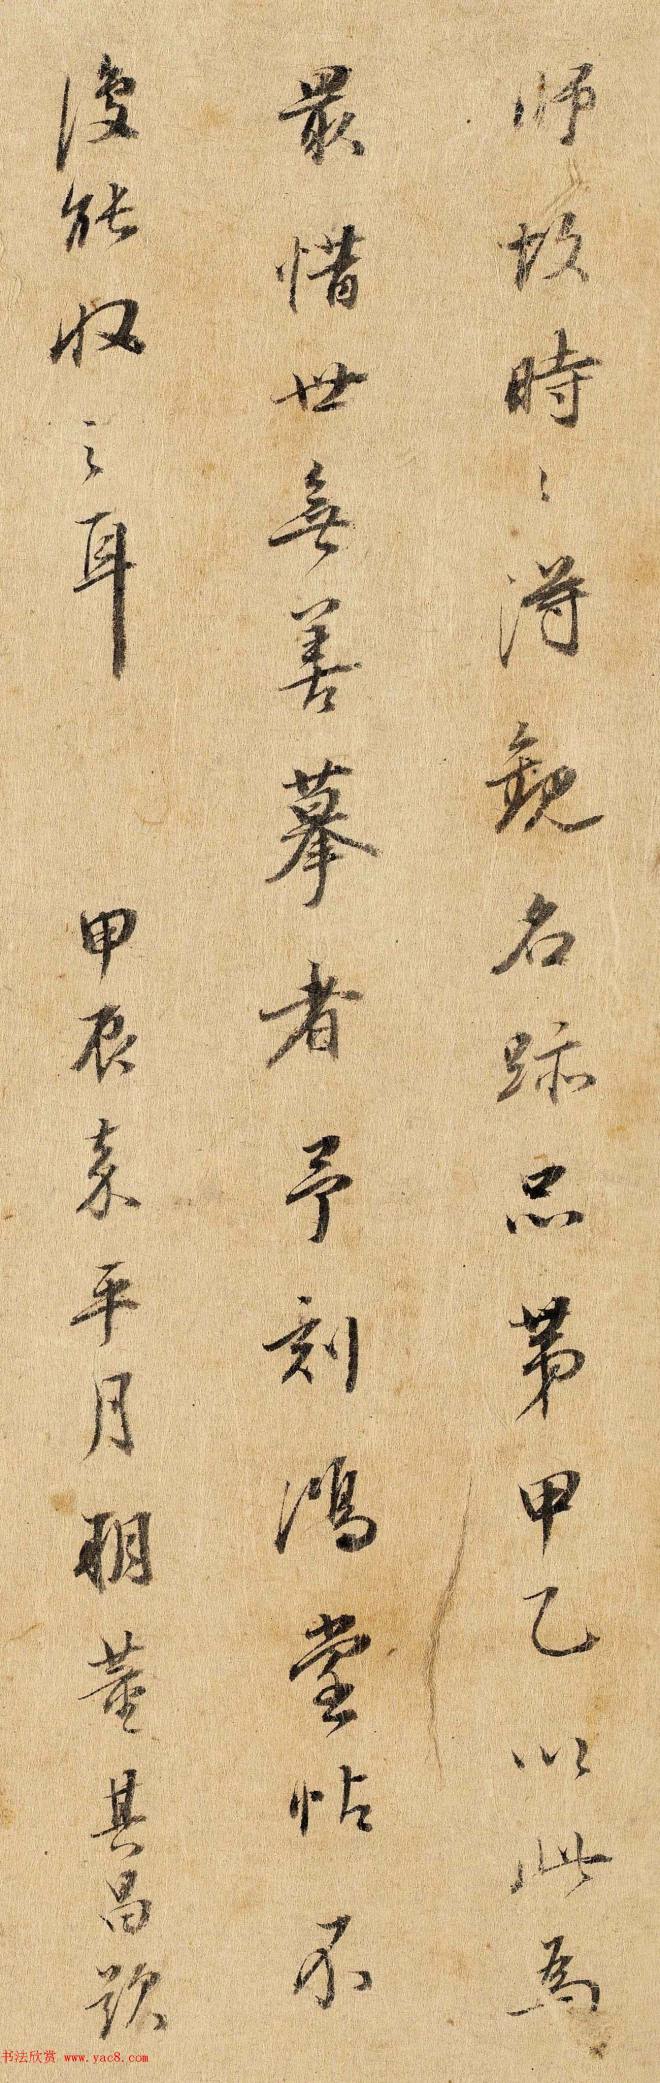 师故時〻得觀名跡品第甲乙以此為
最惜世無善摹者予刻鴻堂帖不
復能收之耳 甲辰嘉平月朔董其昌題
书法欣赏 www.yac8.com